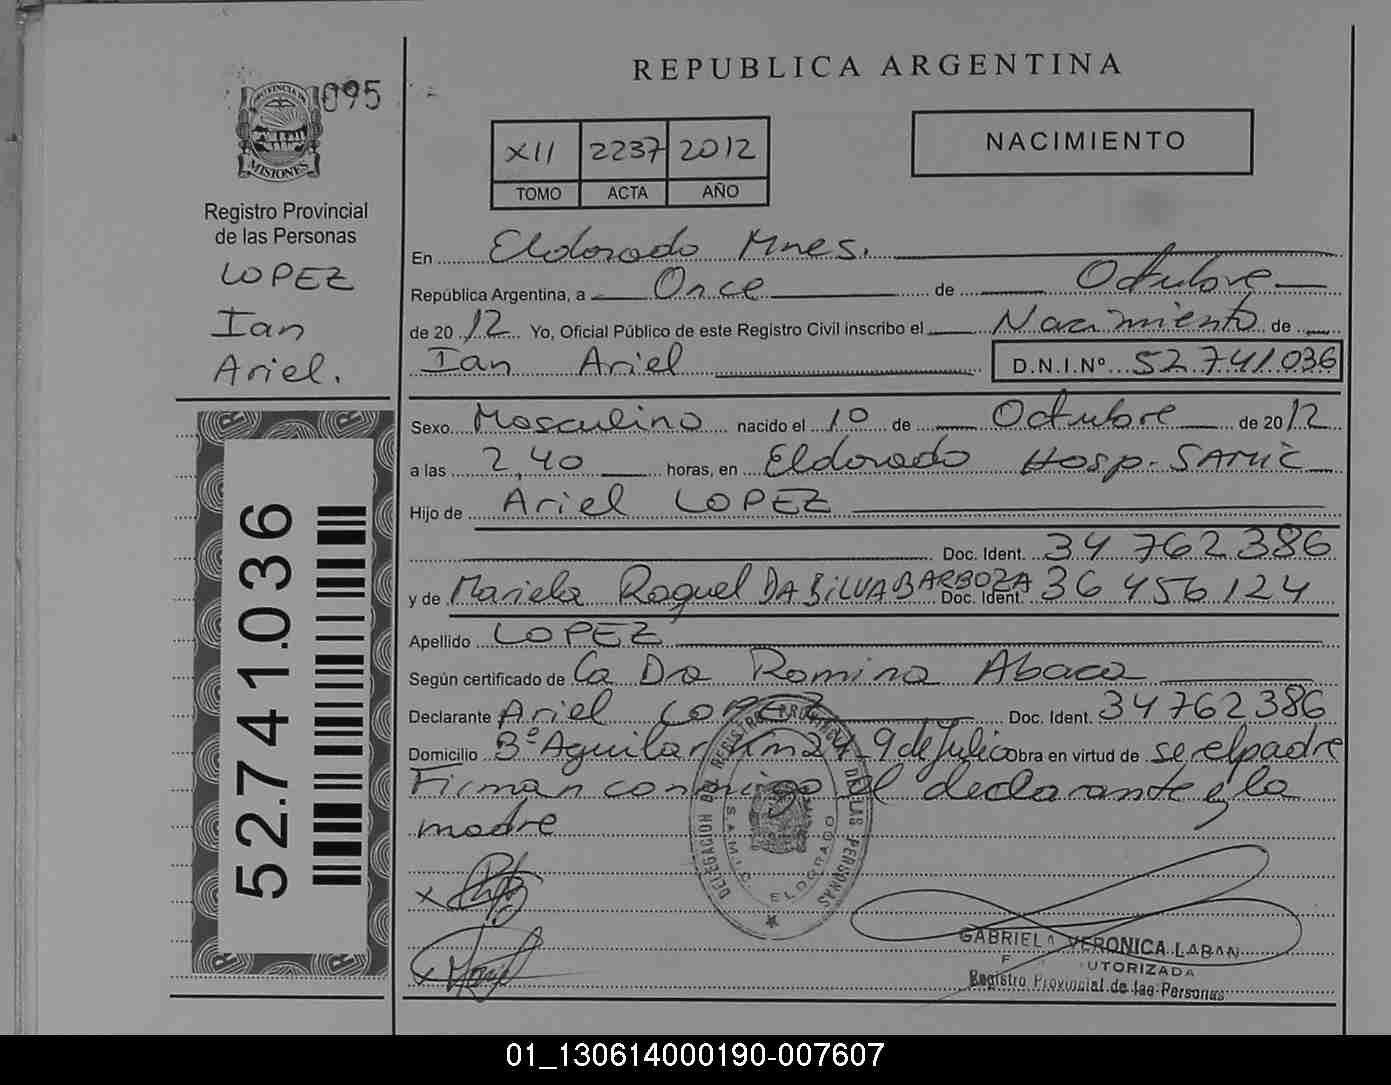 REPUBLICA ARGENTINA
095
PROVINCIA DE
MISIONES
Registro Provincial
de las Personas
LOPEZ
Ian
Ariel.
52.741.036
XII 2237 2012
TOMO ACTA AÑO
NACIMIENTO
En Eldorado Mnes.
República Argentina, a Once de Octubre
de 2012 Yo, Oficial Público de este Registro Civil inscribo el Nacimiento de
Ian Ariel D.N.I.Nº 52.741.036
Sexo Masculino nacido el 10 de Octubre de 2012
a las 2,40 horas, en Eldorado Hosp. SAMIC
Hijo de Ariel LOPEZ
Doc. Ident. 34 762 386
y de Mariela Raquel DA SILVA BARBOZA Doc. Ident. 36 456 124
Apellido LOPEZ
Según certificado de La Dra Romina Abaca
Declarante Ariel LOPEZ Doc. Ident. 34762386
Domicilio Bº Aguilar Km 24 - 9 de Julio Obra en virtud de ser el padre
Firman conmigo el declarante y la
madre
DELEGACION DEL REGISTRO PROVINCIAL DE LAS PERSONAS
SAMIC ELDORADO
GABRIELA VERONICA LABAN
F UTORIZADA
Registro Provincial de las Personas
01_130614000190-007607